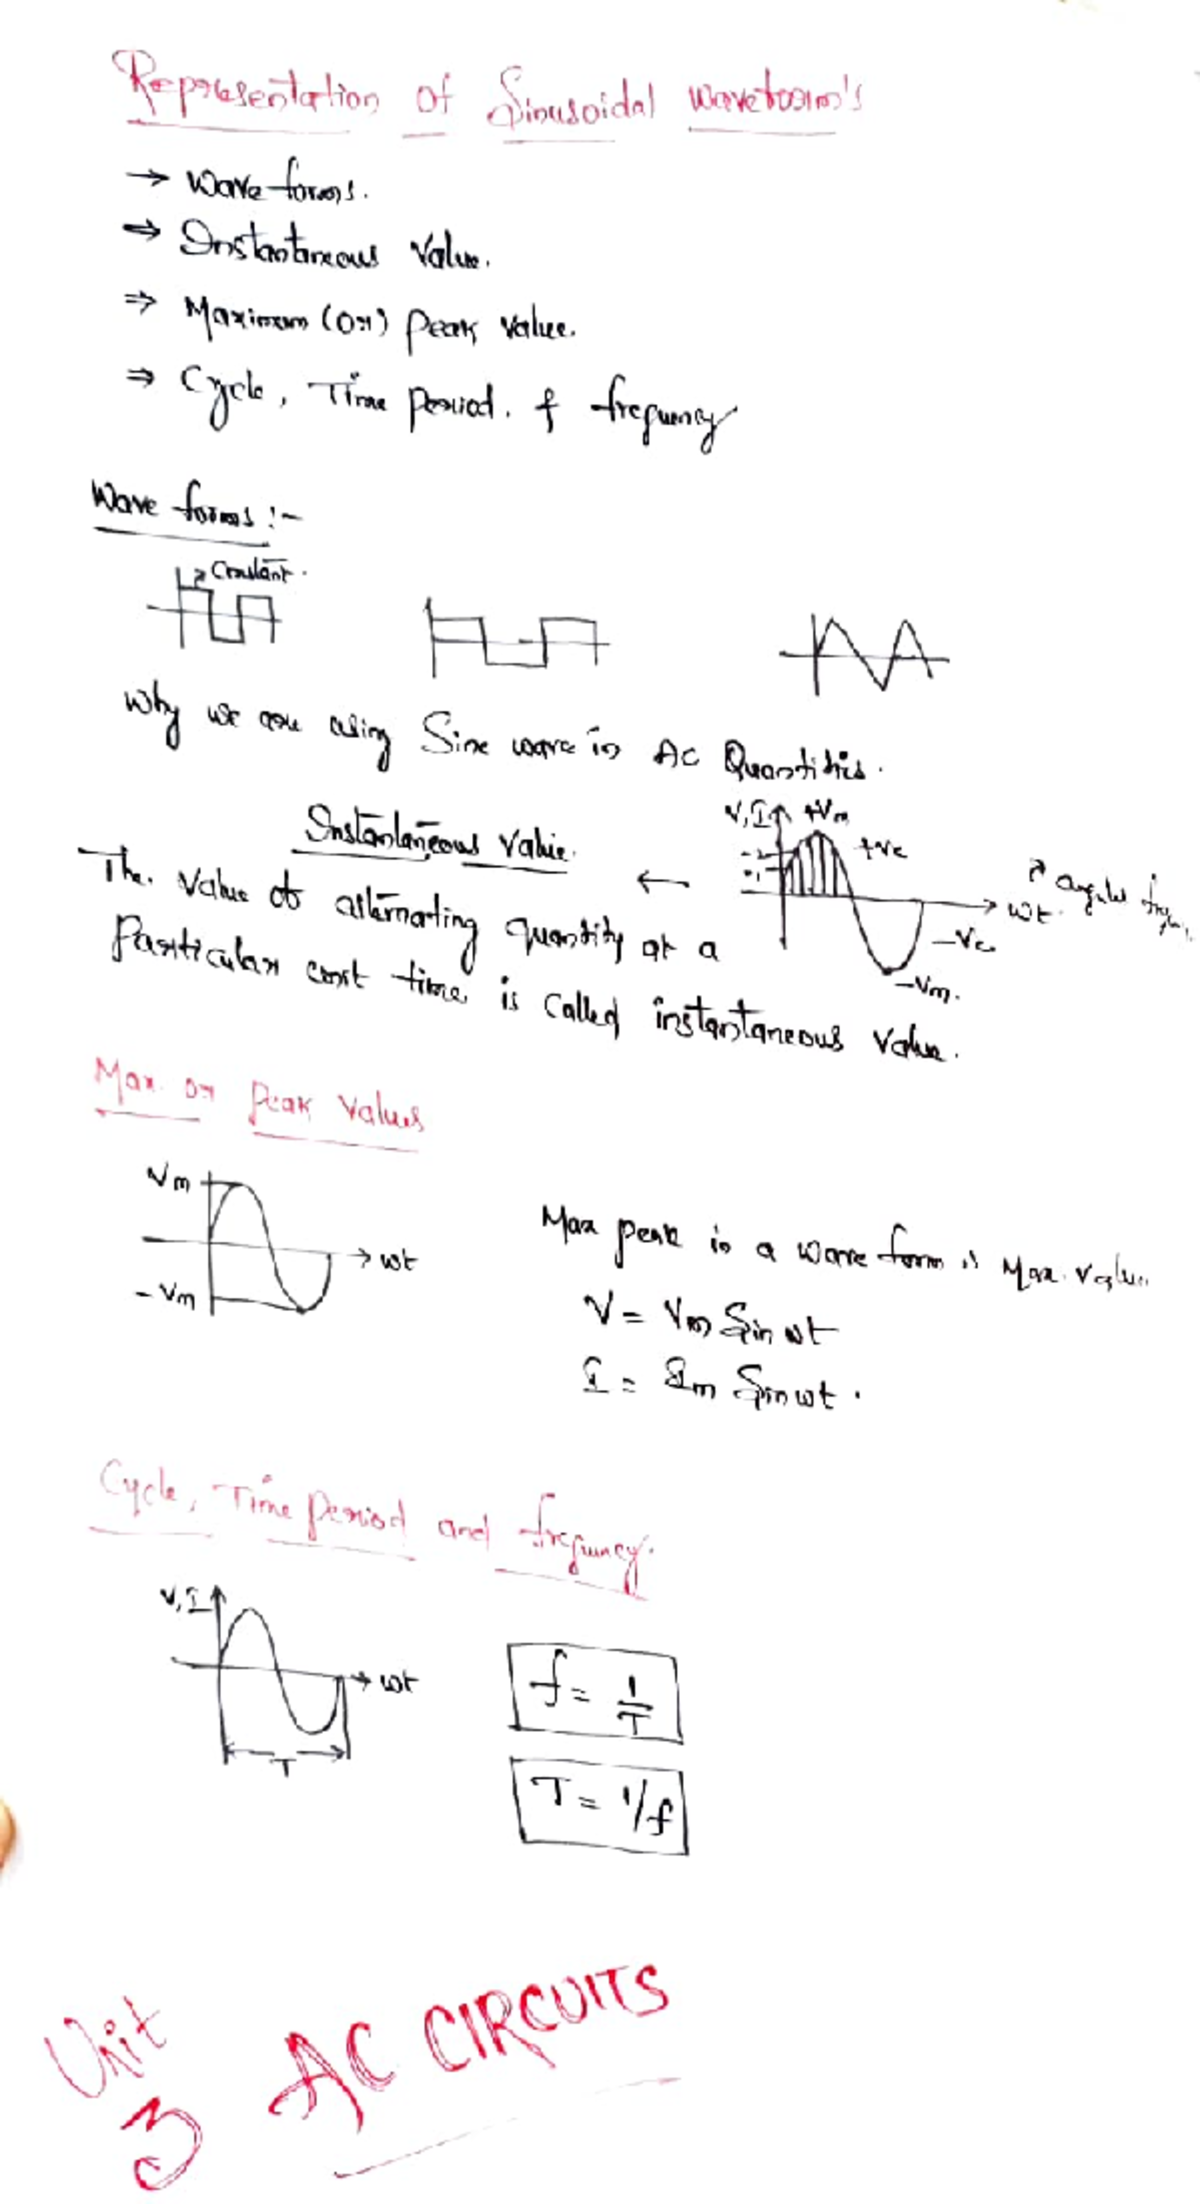 Representation of Sinusoidal waveform's
→ wave forms.
⇒ Instantaneous Value.
⇒ Maximum (or) Peak value.
⇒ Cycle, Time Period. & frequency
Wave forms :-
Constant.
Why we are using Sine wave in AC Quantities.
V, I +Vm
Instantaneous Value.
+ve
The. Value of alternating quantity at a
← angular
ωt.
-Ve
Particular time is called instantaneous value.
-Vm.
Max. or Peak Values
Vm
→ ωt
-Vm
Max peak in a wave form is Max. value
V = Vm Sin ωt
I = Im Sin ωt.
Cycle, Time Period and frequency.
V, I
→ ωt
T
f = 1/T
T = 1/f
Unit
3
AC CIRCUITS